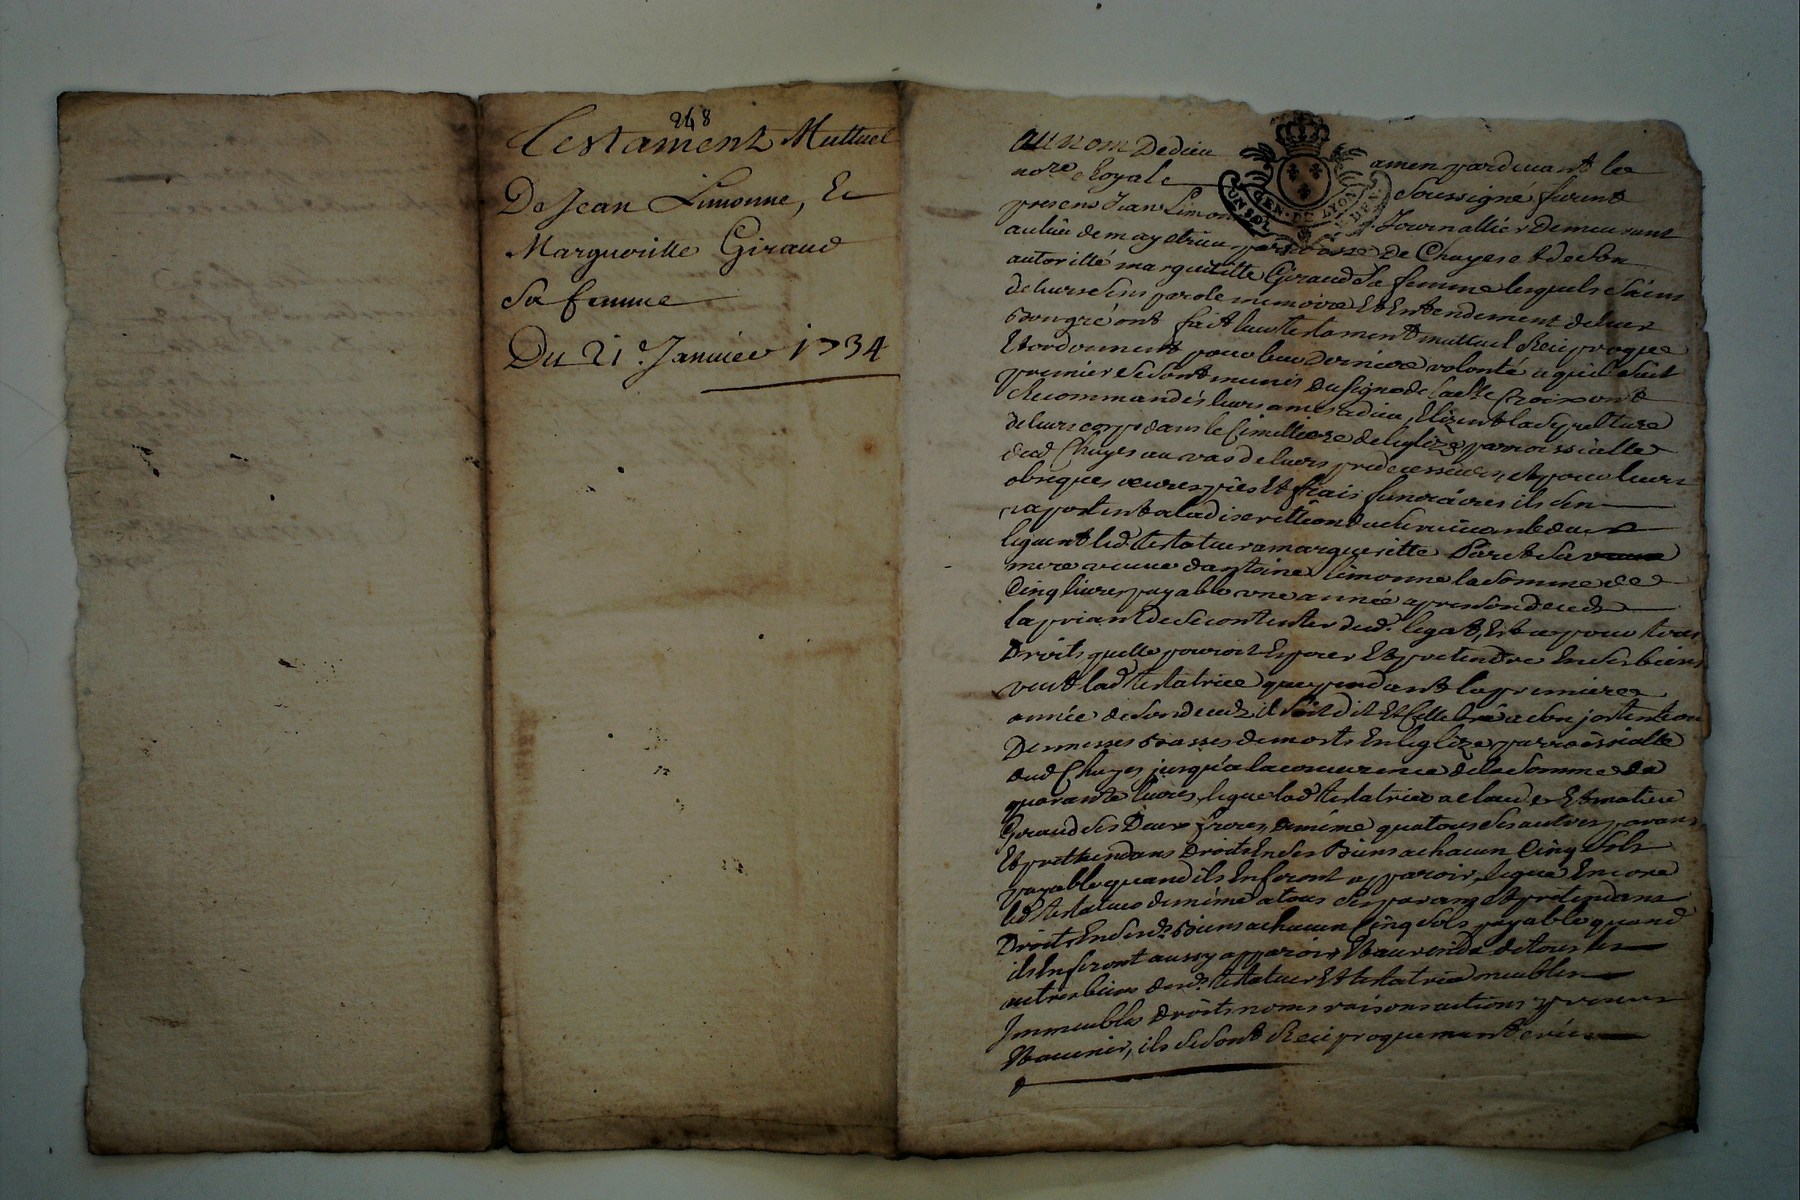 248
Testament Muttuel
De Jean Limonne, Et
Margueritte Giraud
Sa femme
Du 21e. Janvier 1734
au nom De dieu amen pardevant le
nore Royale Soussigné furent
GEN. DE LYON
UN SOL
presens Jean Limonne Journallier Demeurant
au lieu de may parroisse De Chuyes et de Son
autorité margueritte Giraud Sa femme lesquels Sains
de leurs Sens parole memoire Et Entendement de leur
bon gré ont fait leur testament mutuel Reciproque
Et ordonnent pour leur Derniere volonté a qui Suit
premier Se Sont munis du Signe de la Ste Croix ont
Recommandés leurs ames a dieu, Elizent la Sepulture
de leurs corps dans le Cimettiere de l'eglize parroissialle
dud Chuyes au vas de leurs predecesseurs, Et pour leurs
obseques œuvres pies Et frais funeraires ils S'en
raportent a la discrettion du Survivant deux
leguent led testateur a margueritte Sa
mere veuve d'antoine limonne la Somme de
Cinq livres payable une année apres Son decedz
la priant de Se contenter dud. legat, Et ce pour tous
Droits quelle pouroit Esperer Et pretendre En Ses biens
veut lad testatrice que pendant la premiere
année de Son decedz il Soit dit Et Cellebré a Son jntention
Des messes basses de morts En leglize parroissialle
dud Chuyes jusqu'a la concurrence de la Somme de
quarante livres, legue lad testatrice a claude Et matieu
Giraud Ses Deux freres, de même qua tous Ses autres parans
Et prettendans Droits En Ses Biens a chacun Cinq Sols
payable quand ils En feront apparoir, legue Encore
led testateur de même a tous Ses parans Et pretendans
Droits En Sesd. Biens a chacun Cinq Sols payable quand
ils En feront aussy apparoir, Et au reside de tous les
autres biens desd. testateur Et testatrice meubles
Jmmeubles Droits noms raisons actions presens
Et avenir, ils Se Sont Reciproquement